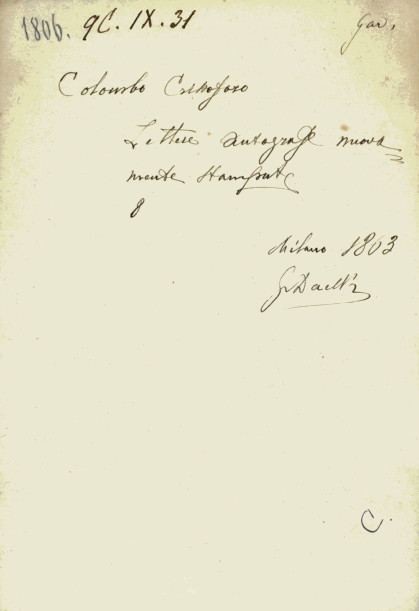 1806. 9C. IX. 31 Gar.
Colombo Cristoforo
Lettere autografe nuova=
mente stampate
8
Milano 1863
G. Daelli
C.